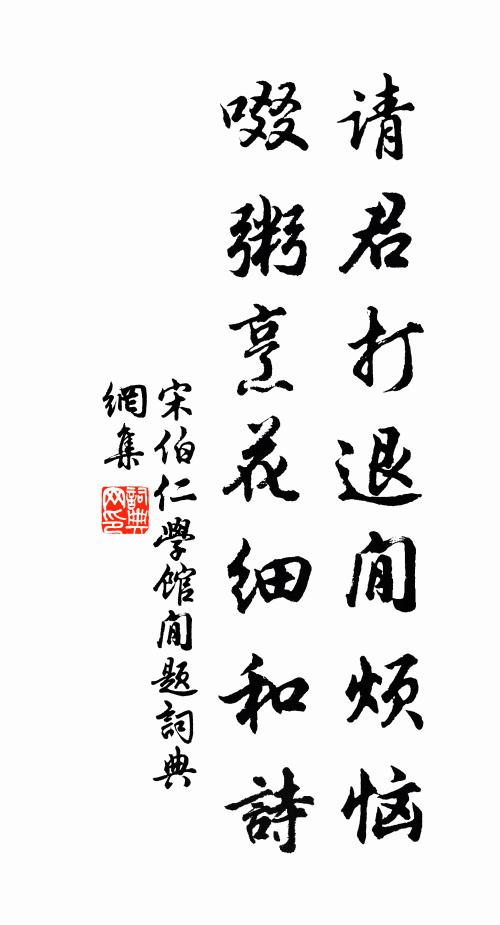 请君打退闲烦恼
啜粥烹花细和詩
宋伯仁學馆闲題詞典
網集
詞典网印